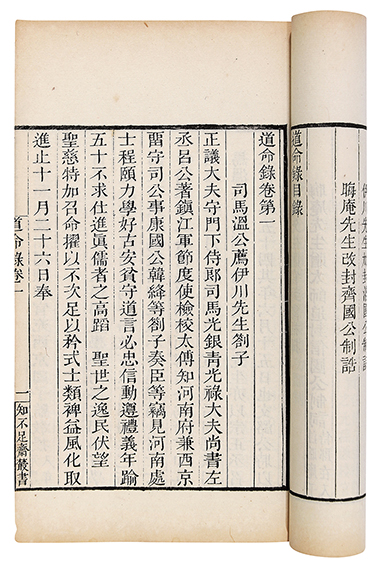 晦庵先生改封齊國公制誥
道命錄目錄
道命錄卷第一
司馬溫公薦伊川先生劄子
正議大夫守門下侍郞司馬光銀靑光祿大夫尚書左
丞呂公著鎭江軍節度使檢校太傅知河南府兼西京
畱守司公事康國公韓絳等劄子奏臣等竊見河南處
士程頤力學好古安貧守道言必忠信動遵禮義年踰
五十不求仕進眞儒者之高蹈　聖世之逸民伏望
聖慈特加召命擢以不次足以矜式士類裨益風化取
進止十一月二十六日奉
道命錄卷一
一
知不足齋叢書